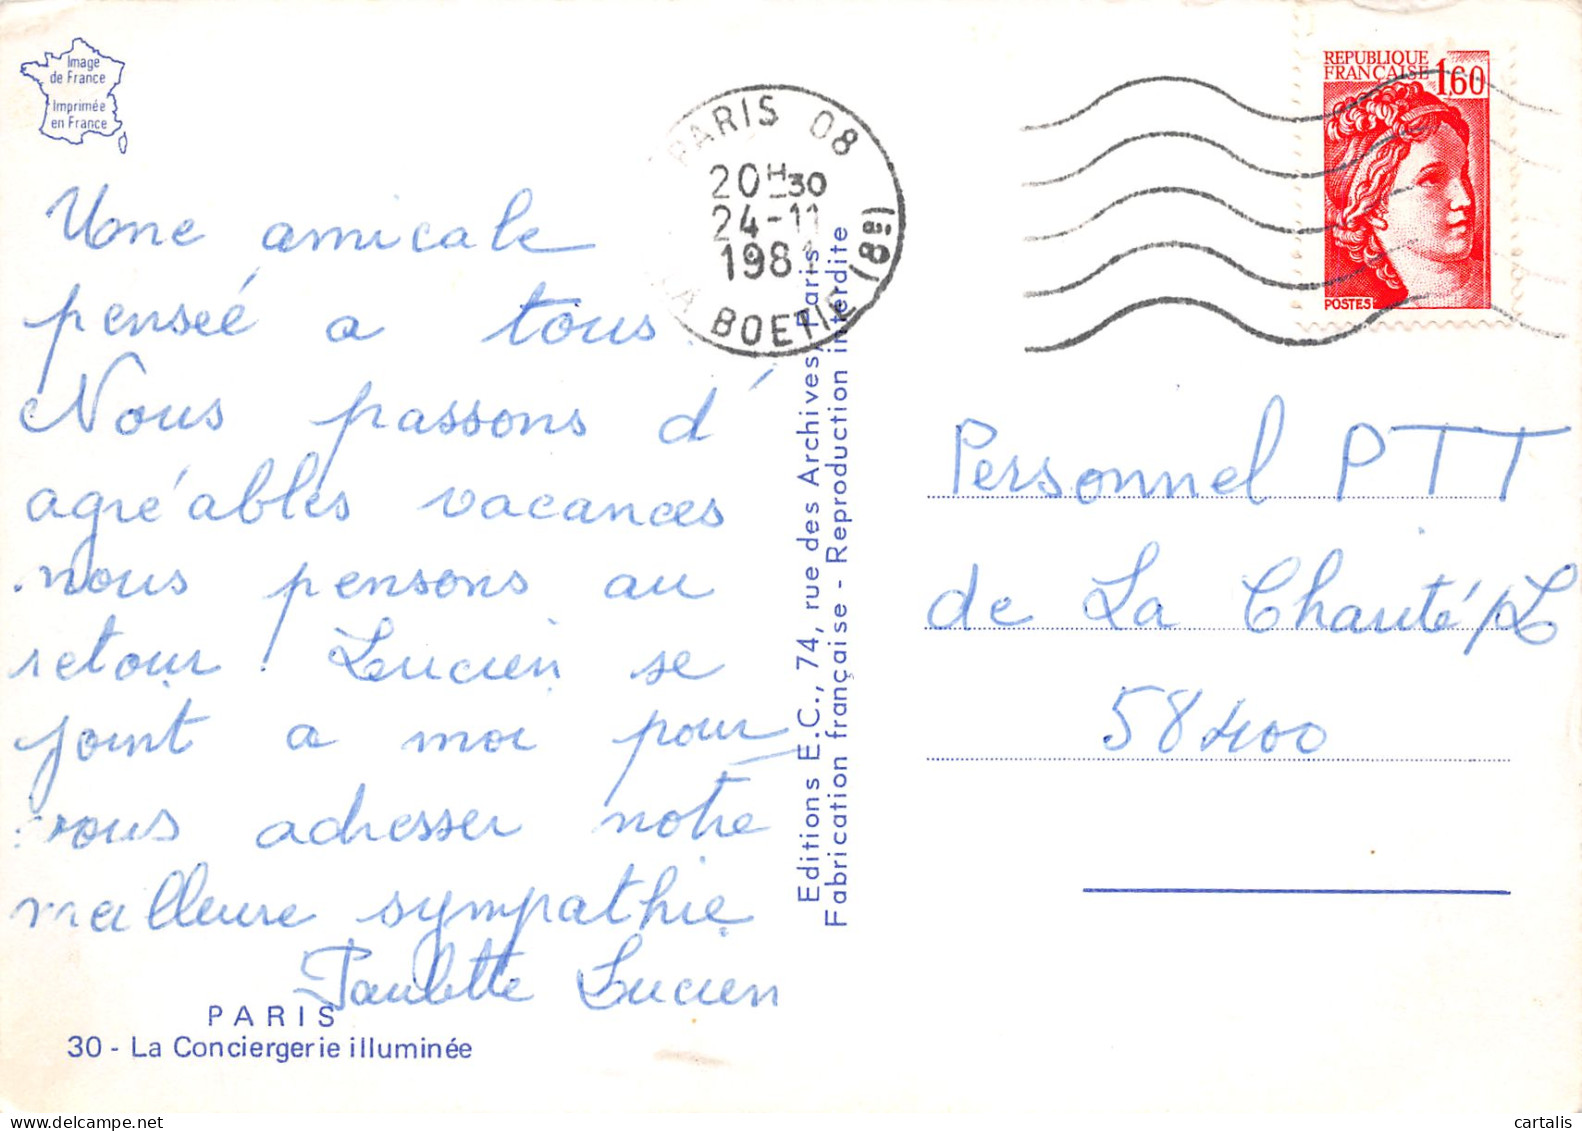 Image
de France
Imprimée
en France
Une amicale
penseé a tous.
Nous passons d'
agréables vacances
nous pensons au
retour ! Lucien se
joint a moi pour
vous adresser notre
meilleure sympathie
Paulette Lucien
PARIS
30 - La Conciergerie illuminée
Editions E.C., 74, rue des Archives, Paris
Fabrication française - Reproduction interdite
PARIS 08
20H30
24-11
1981
LA BOETIE (8e)
REPUBLIQUE
FRANÇAISE 1,60
POSTES
Personnel PTT
de La Charité/L
58400
cartalis